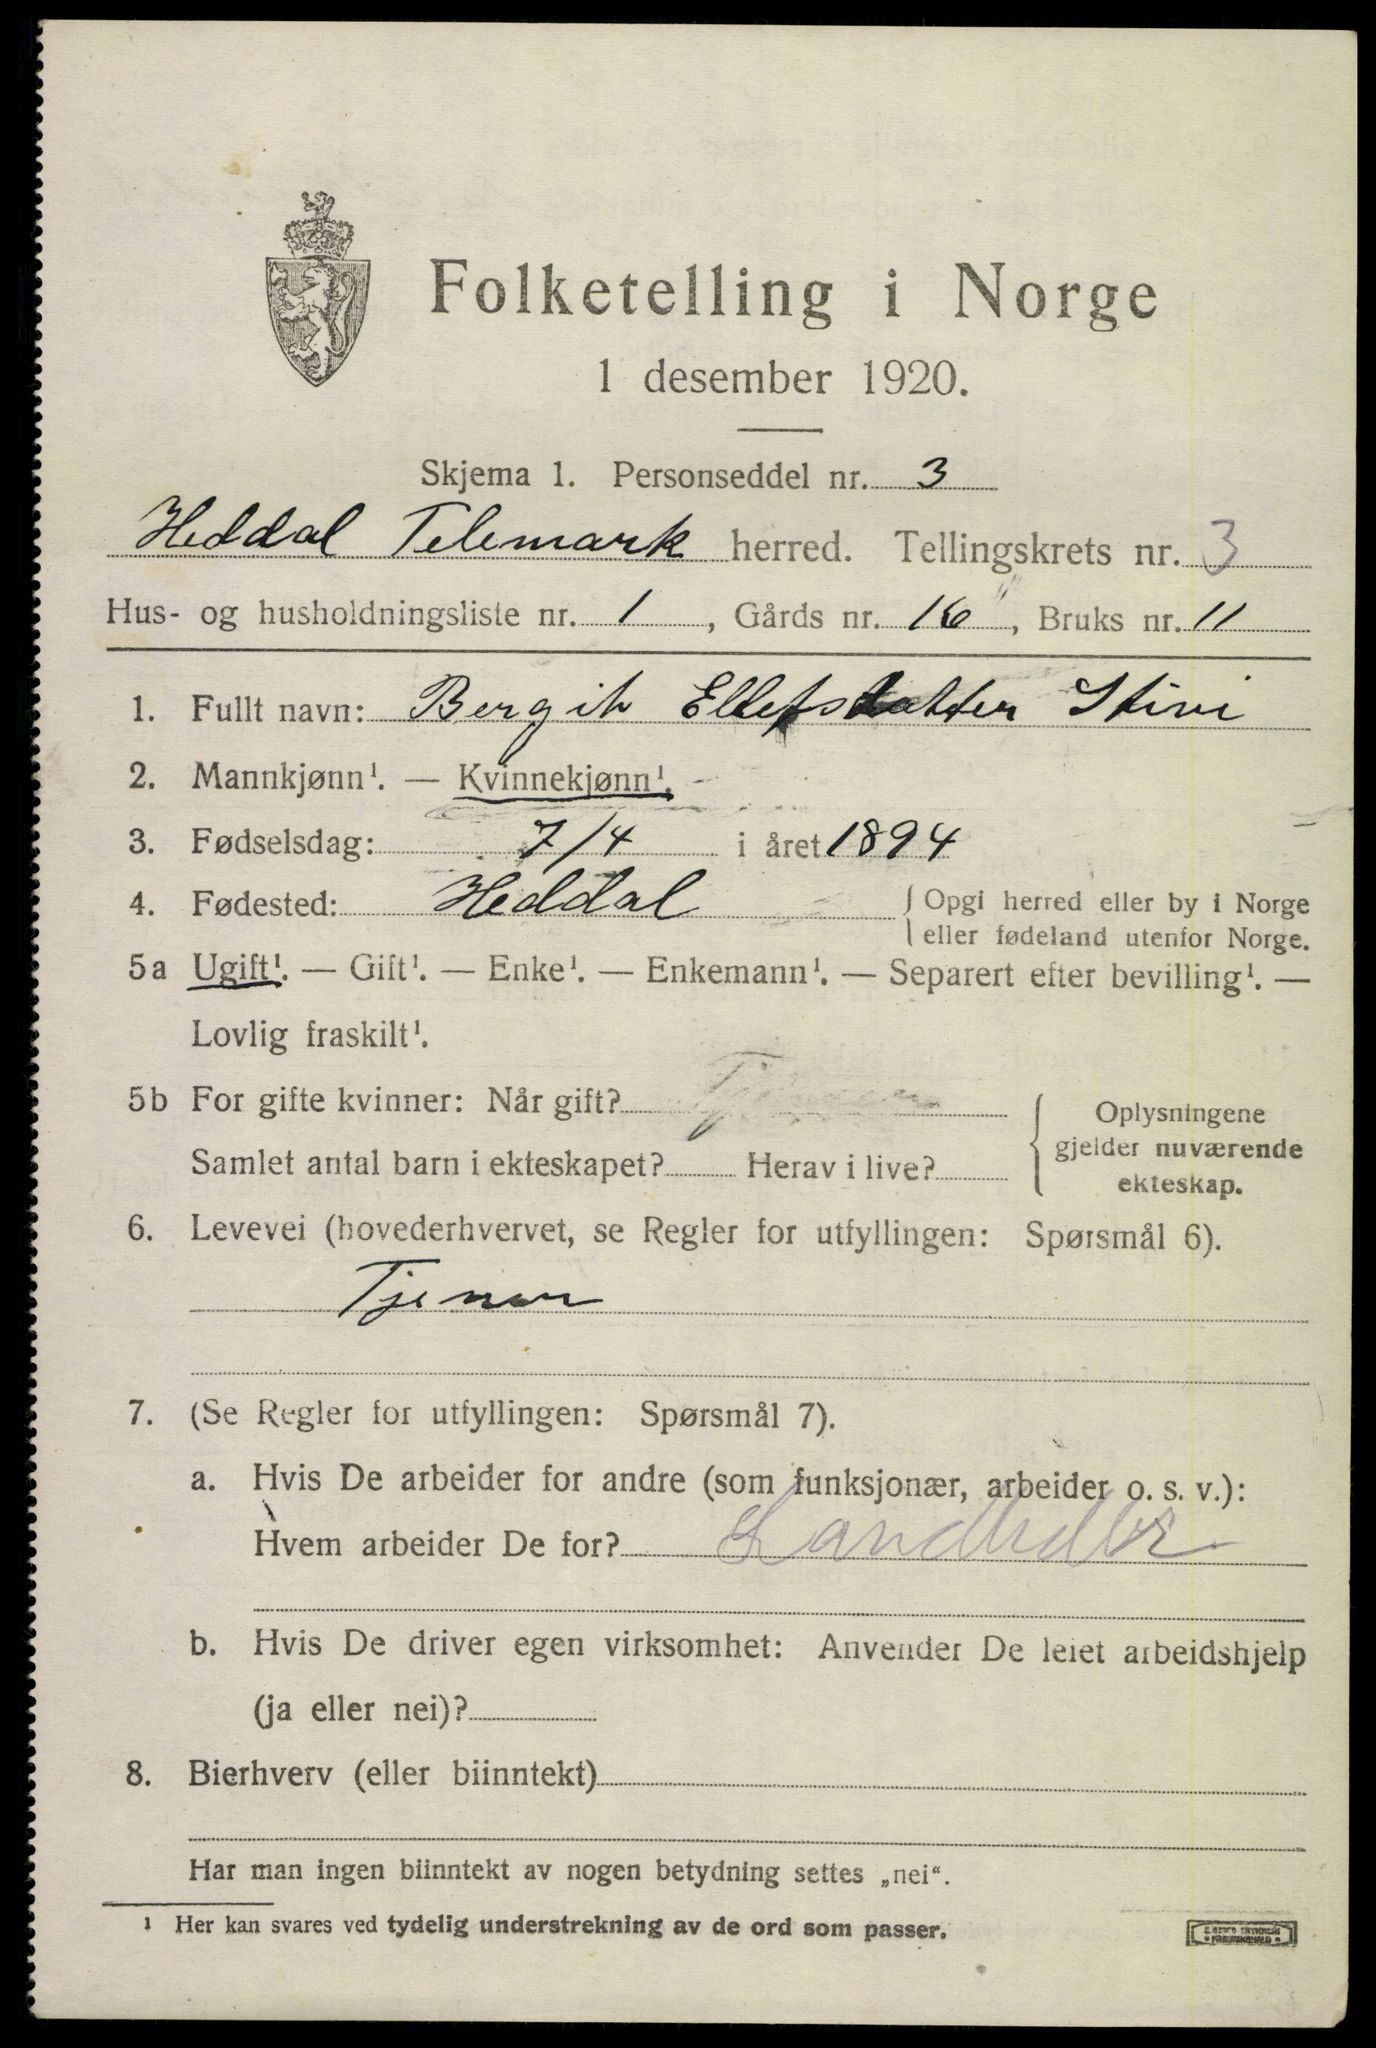 Folketelling i Norge
1 desember 1920.
Skjema 1. Personseddel nr. 3
Heddal Telemark herred. Tellingskrets nr. 3
Hus- og husholdningsliste nr. 1, Gårds nr. 16, Bruks nr. 11
1. Fullt navn: Bergit Ellefsdatter Stivi
2. Mannkjønn¹. — Kvinnekjønn¹.
3. Fødselsdag: 7/4 i året 1894
4. Fødested: Heddal { Opgi herred eller by i Norge
eller fødeland utenfor Norge.
5a Ugift¹. — Gift¹. — Enke¹. — Enkemann¹. — Separert efter bevilling¹. —
Lovlig fraskilt¹.
5b For gifte kvinner: Når gift?
Samlet antal barn i ekteskapet? Herav i live?
{ Oplysningene
gjelder nuværende
ekteskap.
6. Levevei (hovederhvervet, se Regler for utfyllingen: Spørsmål 6).
Tjener
7. (Se Regler for utfyllingen: Spørsmål 7).
a. Hvis De arbeider for andre (som funksjonær, arbeider o. s. v.):
Hvem arbeider De for?
b. Hvis De driver egen virksomhet: Anvender De leiet arbeidshjelp
(ja eller nei)?
8. Bierhverv (eller biinntekt)
Har man ingen biinntekt av nogen betydning settes „nei“.
¹ Her kan svares ved tydelig understrekning av de ord som passer.